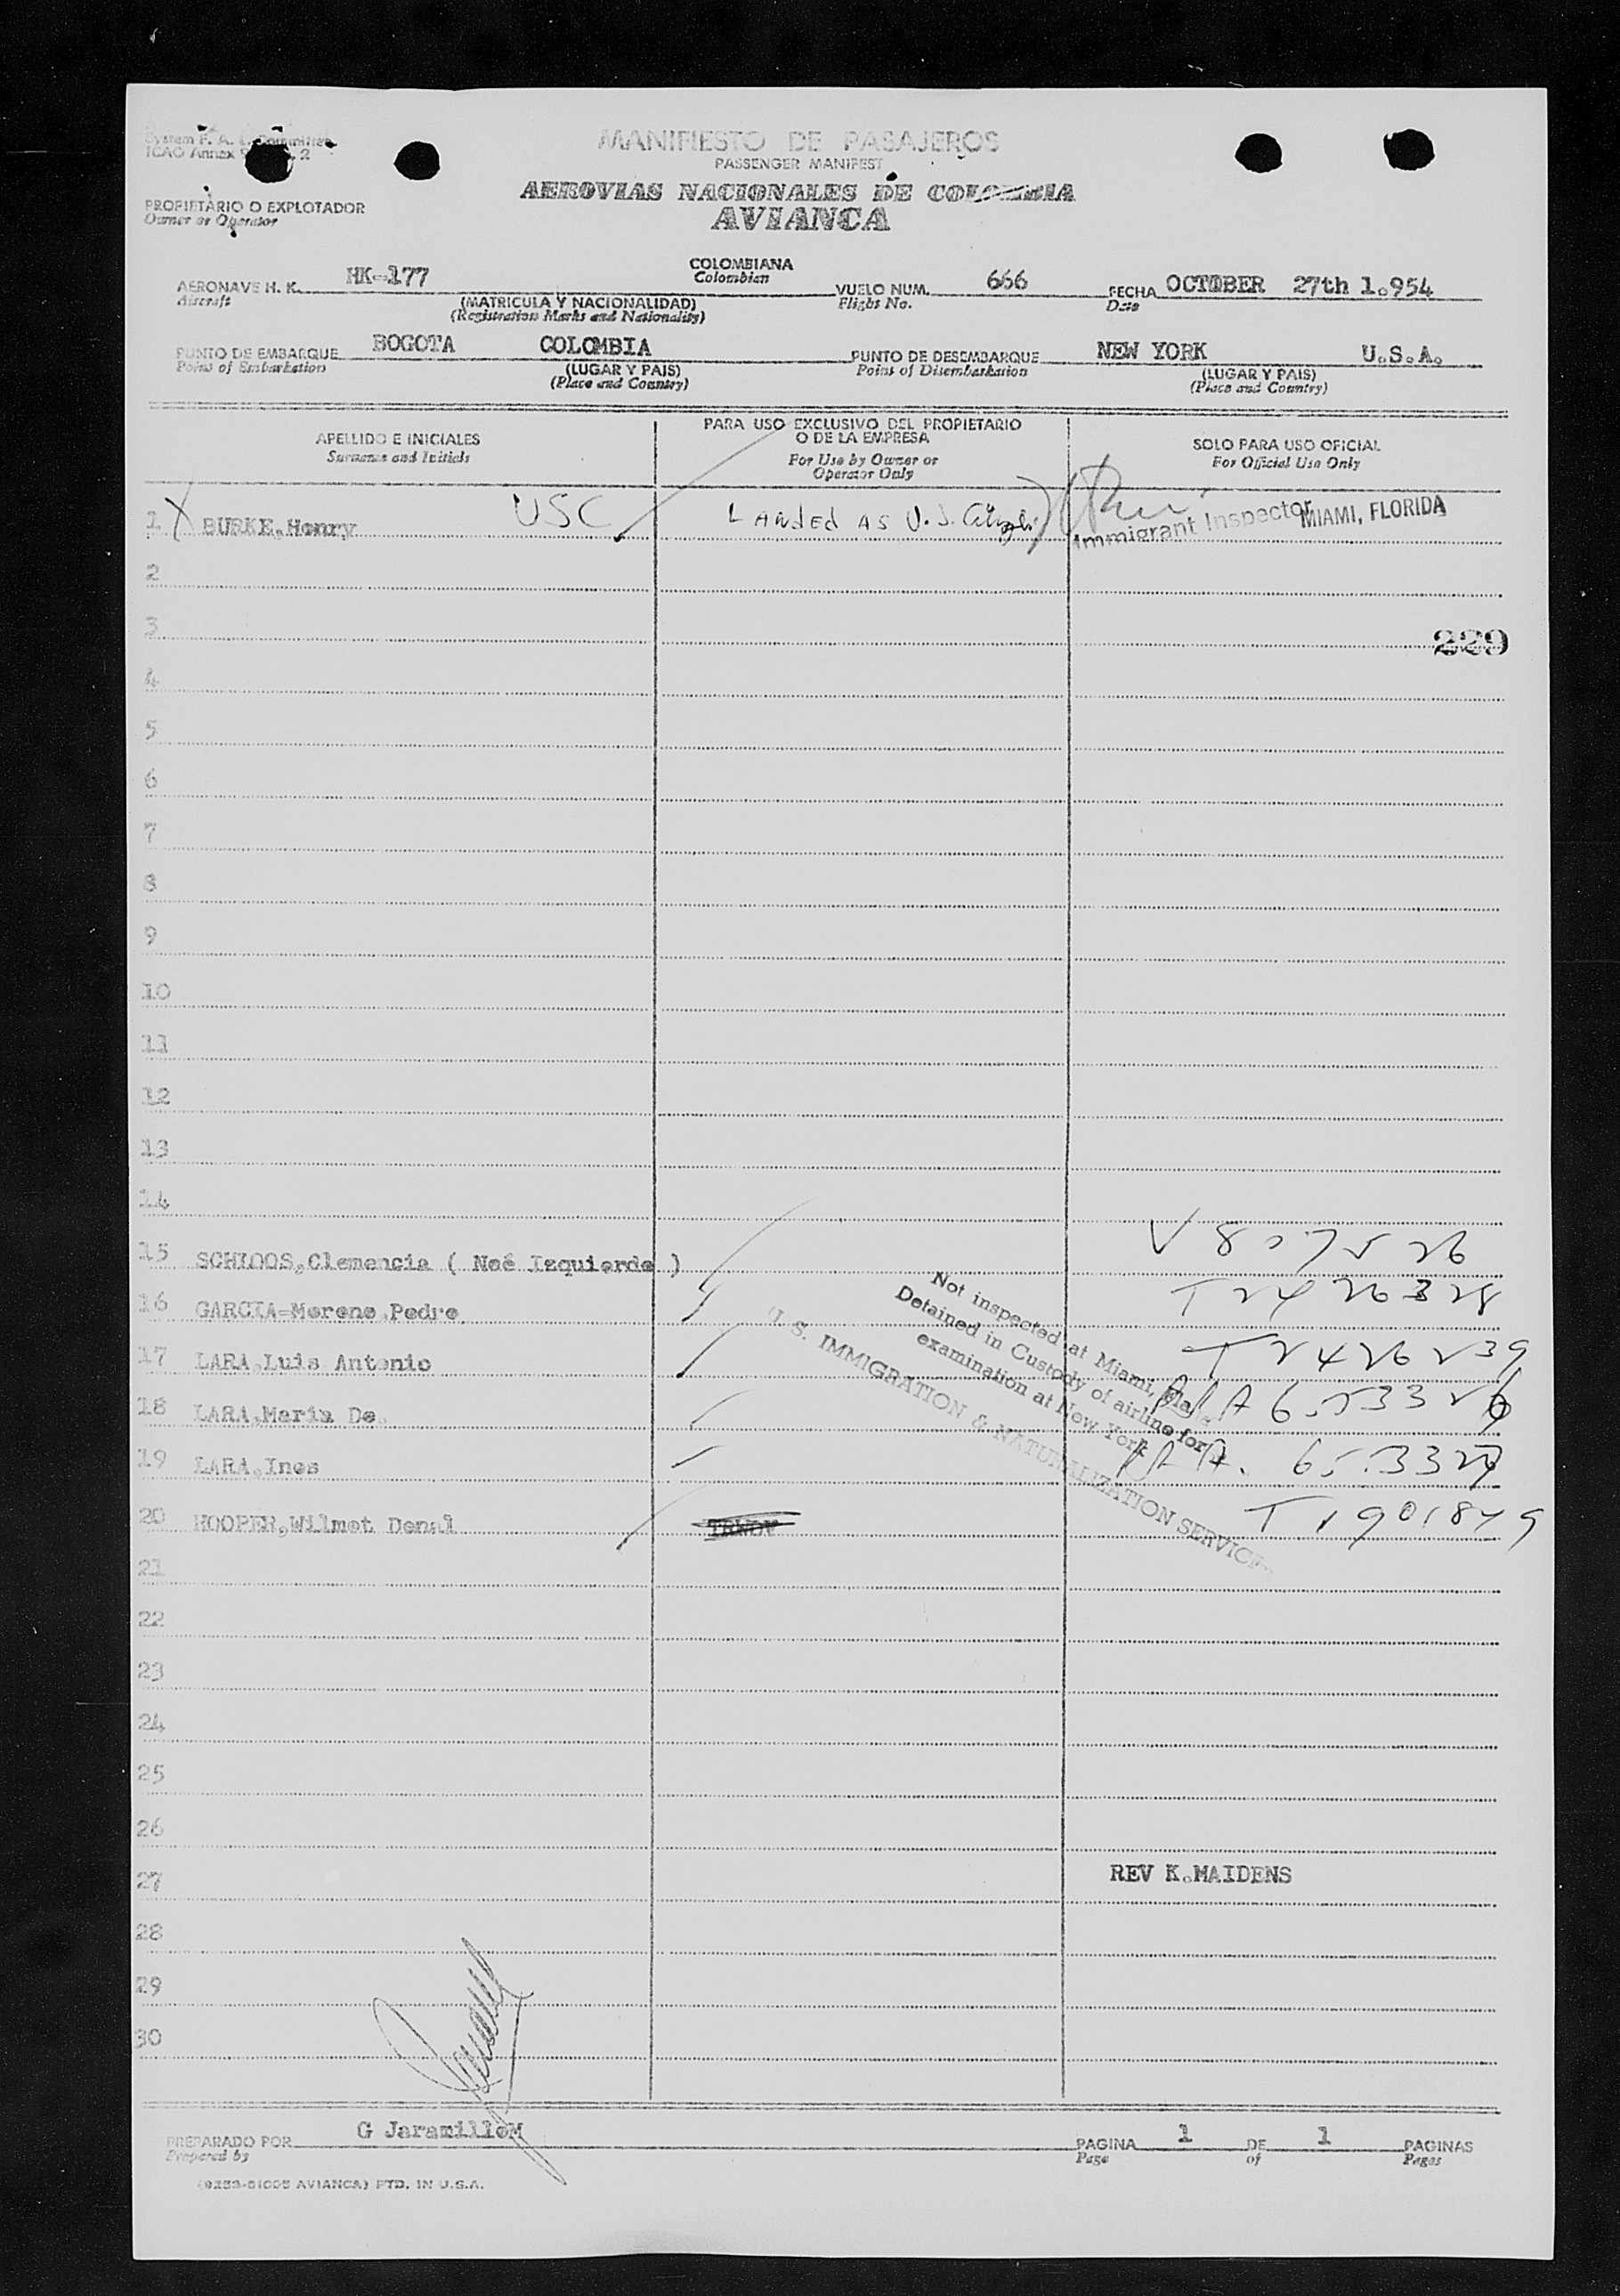 System F. A. L. Committee
ICAO Annex 9 2
MANIFIESTO DE PASAJEROS
PASSENGER MANIFEST
AEROVIAS NACIONALES DE COLOMBIA
AVIANCA
PROPIETARIO O EXPLOTADOR
Owner or Operator
AERONAVE H. K. HK-177 COLOMBIANA VUELO NUM. 666 FECHA OCTOBER 27th 1.954
Aircraft Colombian Flight No. Date
(MATRICULA Y NACIONALIDAD)
(Registration Marks and Nationality)
PUNTO DE EMBARQUE BOGOTA COLOMBIA PUNTO DE DESEMBARQUE NEW YORK U.S.A.
Point of Embarkation (LUGAR Y PAIS) Point of Disembarkation (LUGAR Y PAIS)
(Place and Country) (Place and Country)
APELLIDO E INICIALES
Surname and Initials
PARA USO EXCLUSIVO DEL PROPIETARIO
O DE LA EMPRESA
For Use by Owner or
Operator Only
SOLO PARA USO OFICIAL
For Official Use Only
1 X BURKE,Henry USC LANDED AS U.S. Immigrant Inspector MIAMI, FLORIDA
2
3 229
4
5
6
7
8
9
10
11
12
13
14
15 SCHLOOS,Clemencia ( Noé Izquierdo )
16 GARCIA-Moreno,Pedro
17 LARA,Luis Antonio T 2426239
18 LARA,Maria De
19 LARA,Ines
20 HOOPER,Wilmot Denal
Not inspected at Miami, Fla.
Detained in Custody of airline for
examination at New York
U. S. IMMIGRATION & NATURALIZATION SERVICE
21
22
23
24
25
26
27 REV K.MAIDENS
28
29
30
PREPARADO POR G JaramilloM PAGINA 1 DE 1 PAGINAS
Prepared by Page of Pages
(9253-01005 AVIANCA) PTD. IN U.S.A.